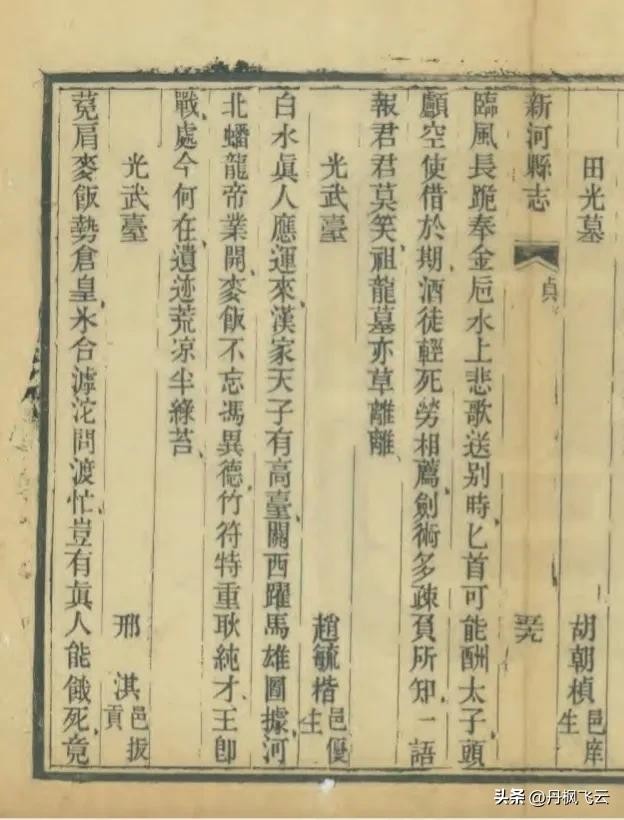 田光墓 胡朝楨 邑庠生
新河縣志 貞
臨風長跪奉金卮水上悲歌送别時、匕首可能酬太子、頭
顱空使借於期、酒徒輕死勞相薦、劍術多疎負所知、一語
報君君莫笑、祖龍墓亦草離離、
光武臺 趙毓楷 邑優生
白水眞人應運來、漢家天子有高臺、關西躍馬雄圖據、河
北蟠龍帝業開、麥飯不忘馮異德、竹符特重耿純才、王郎
戰處今何在、遺迹荒凉半綠苔、
光武臺 邢淇 邑拔貢
菟肩麥飯勢倉皇、氷合滹沱問渡忙、豈有眞人能餓死、竟
头条 @丹枫飞云